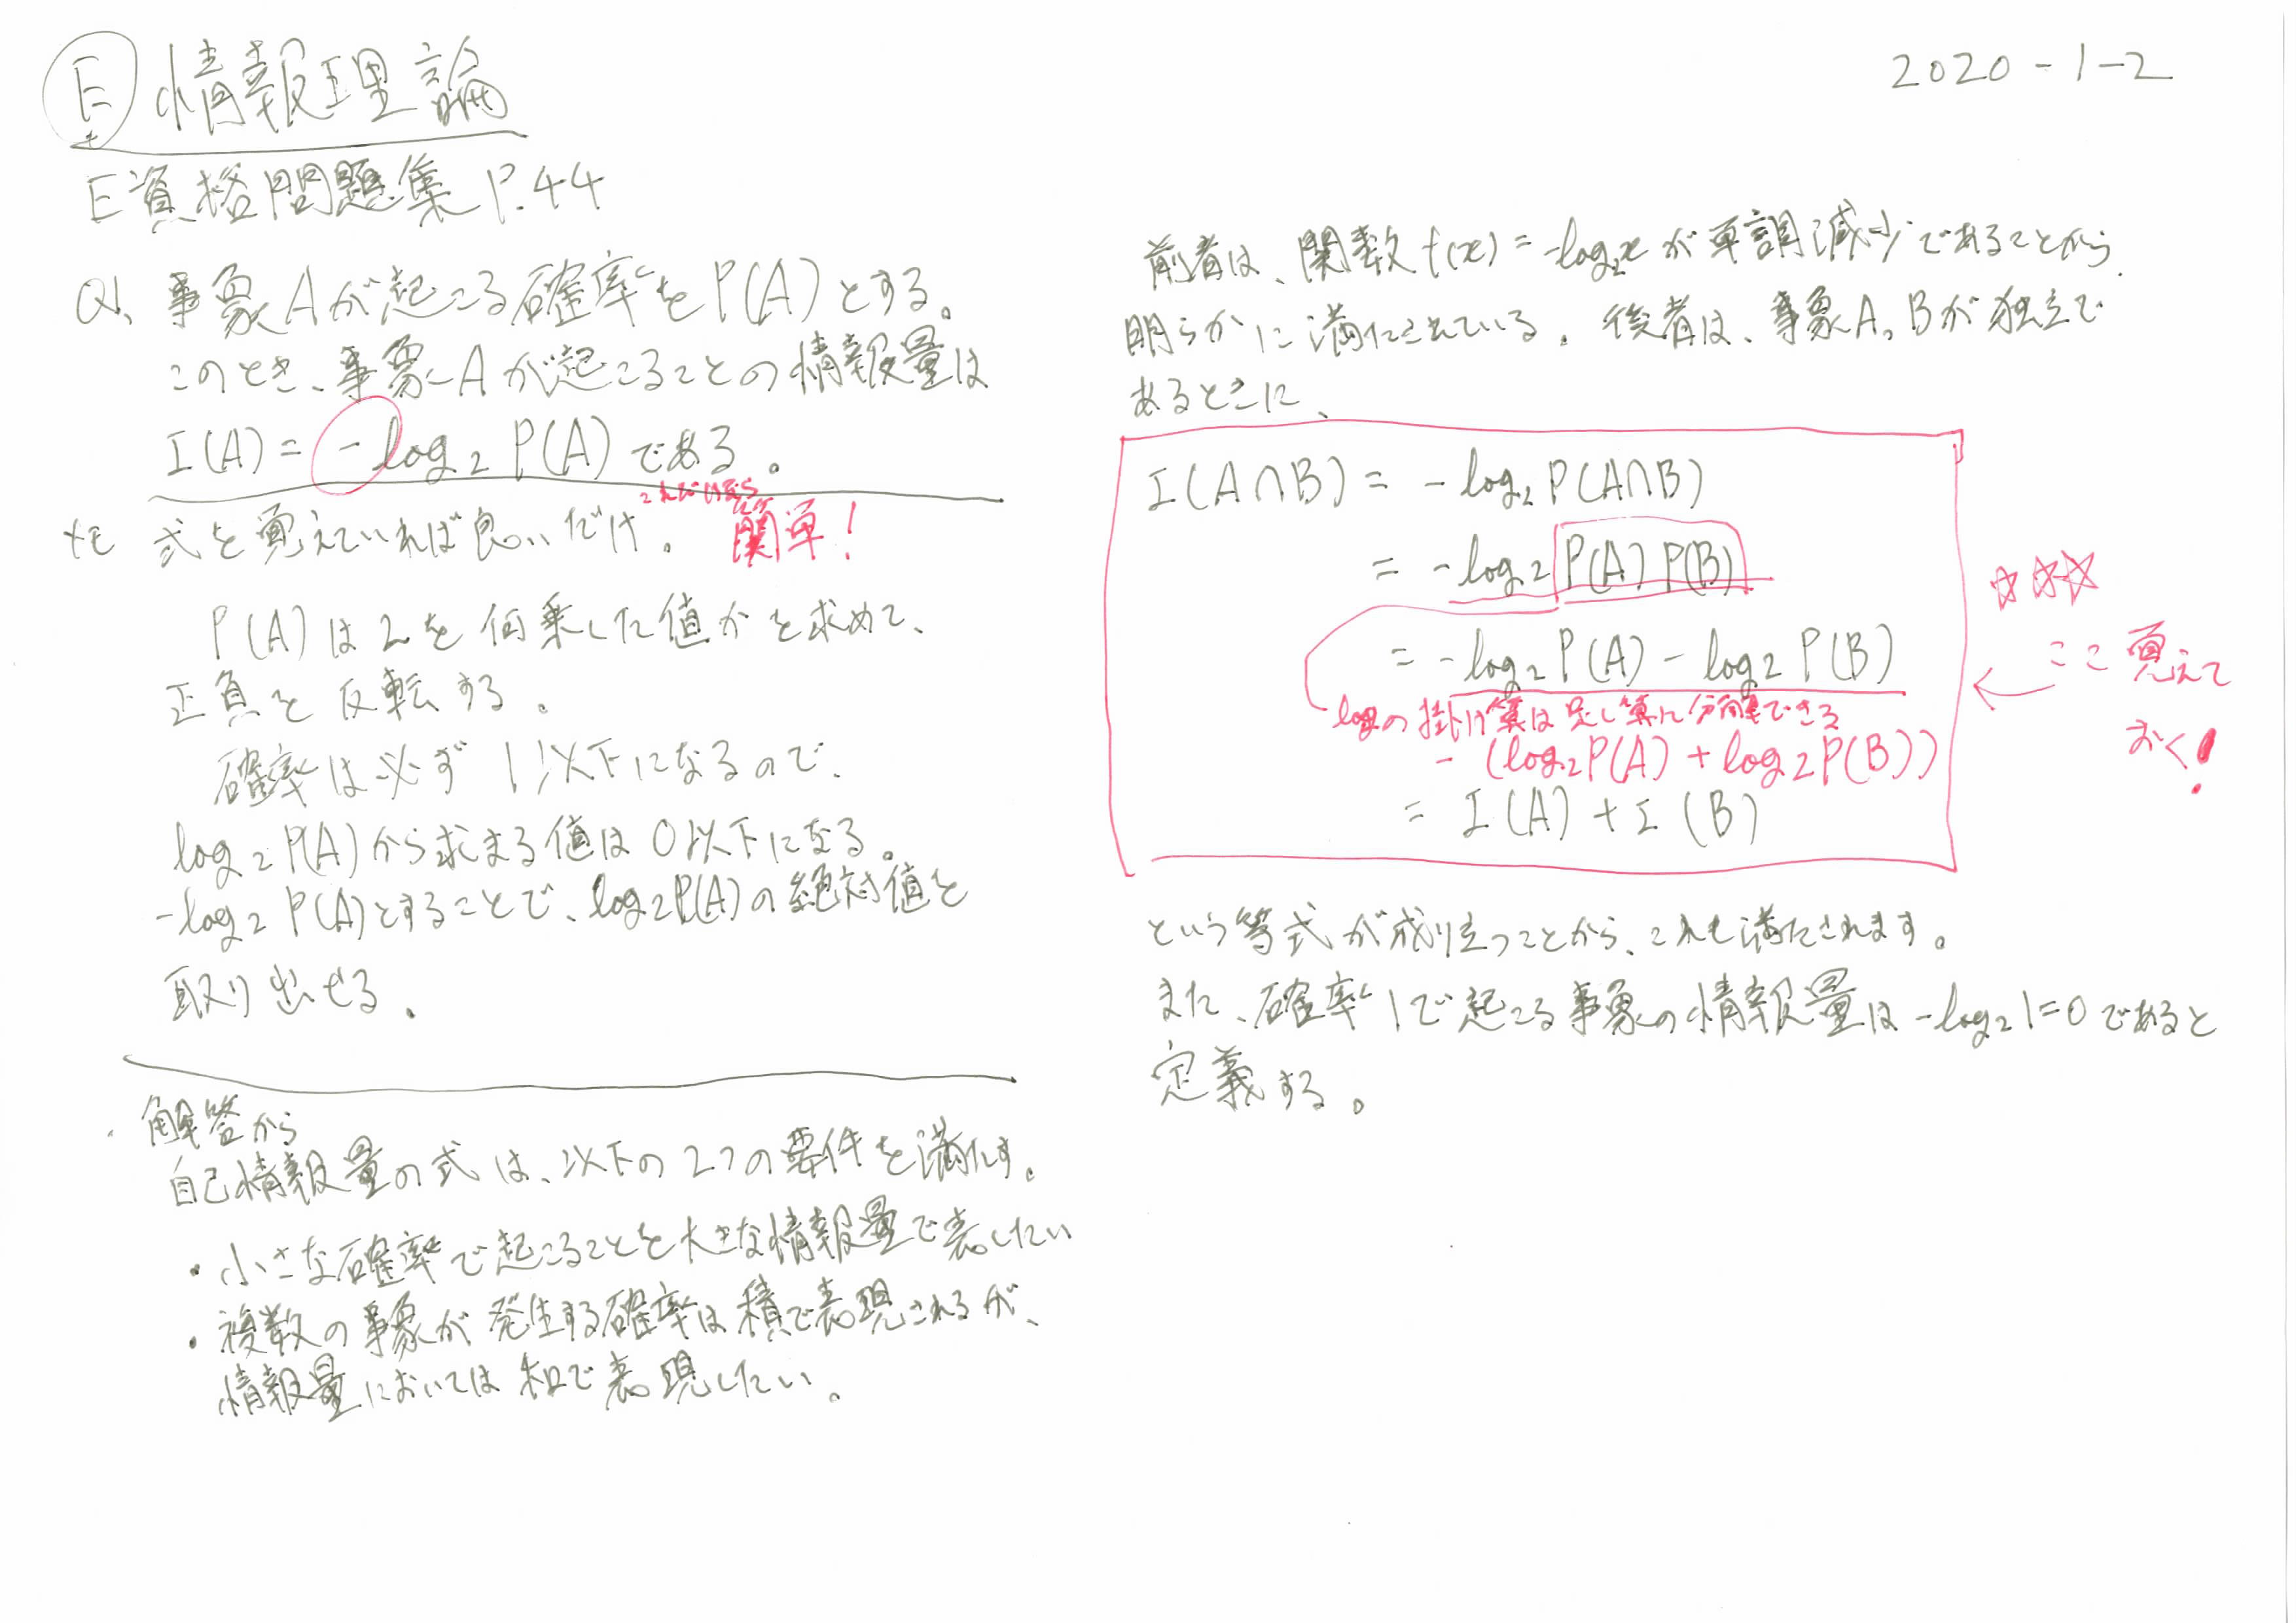 E 情報理論
2020-1-2
E資格問題集 P.44
Q. 事象Aが起こる確率をP(A)とする。
このとき、事象Aが起こることの情報量は
I(A) = -log₂ P(A) である。
メモ 式を覚えていれば良いだけ。
これだけなら
簡単!
P(A)は2を何乗した値かを求めて、
正負を反転する。
確率は必ず1以下になるので、
log₂ P(A)から求まる値は0以下になる。
-log₂ P(A)とすることで、log₂P(A)の絶対値を
取り出せる。
解答から
自己情報量の式は、以下の2つの要件を満たす。
・小さな確率で起こることを大きな情報量で表したい
・複数の事象が発生する確率は積で表現されるが、
情報量においては和で表現したい。
前者は、関数f(x) = -log₂xが単調減少であることから、
明らかに満たされている。後者は、事象A、Bが独立で
あるときに、
I(A∩B) = -log₂P(A∩B)
= -log₂ P(A)P(B)
= -log₂P(A) - log₂P(B)
logの掛け算は足し算に分解できる
-(log₂P(A) + log₂P(B))
= I(A) + I(B)
☆☆☆
← ここ覚えて
おく!
という等式が成り立つことから、これも満たされます。
また、確率1で起こる事象の情報量は-log₂1=0であると
定義する。